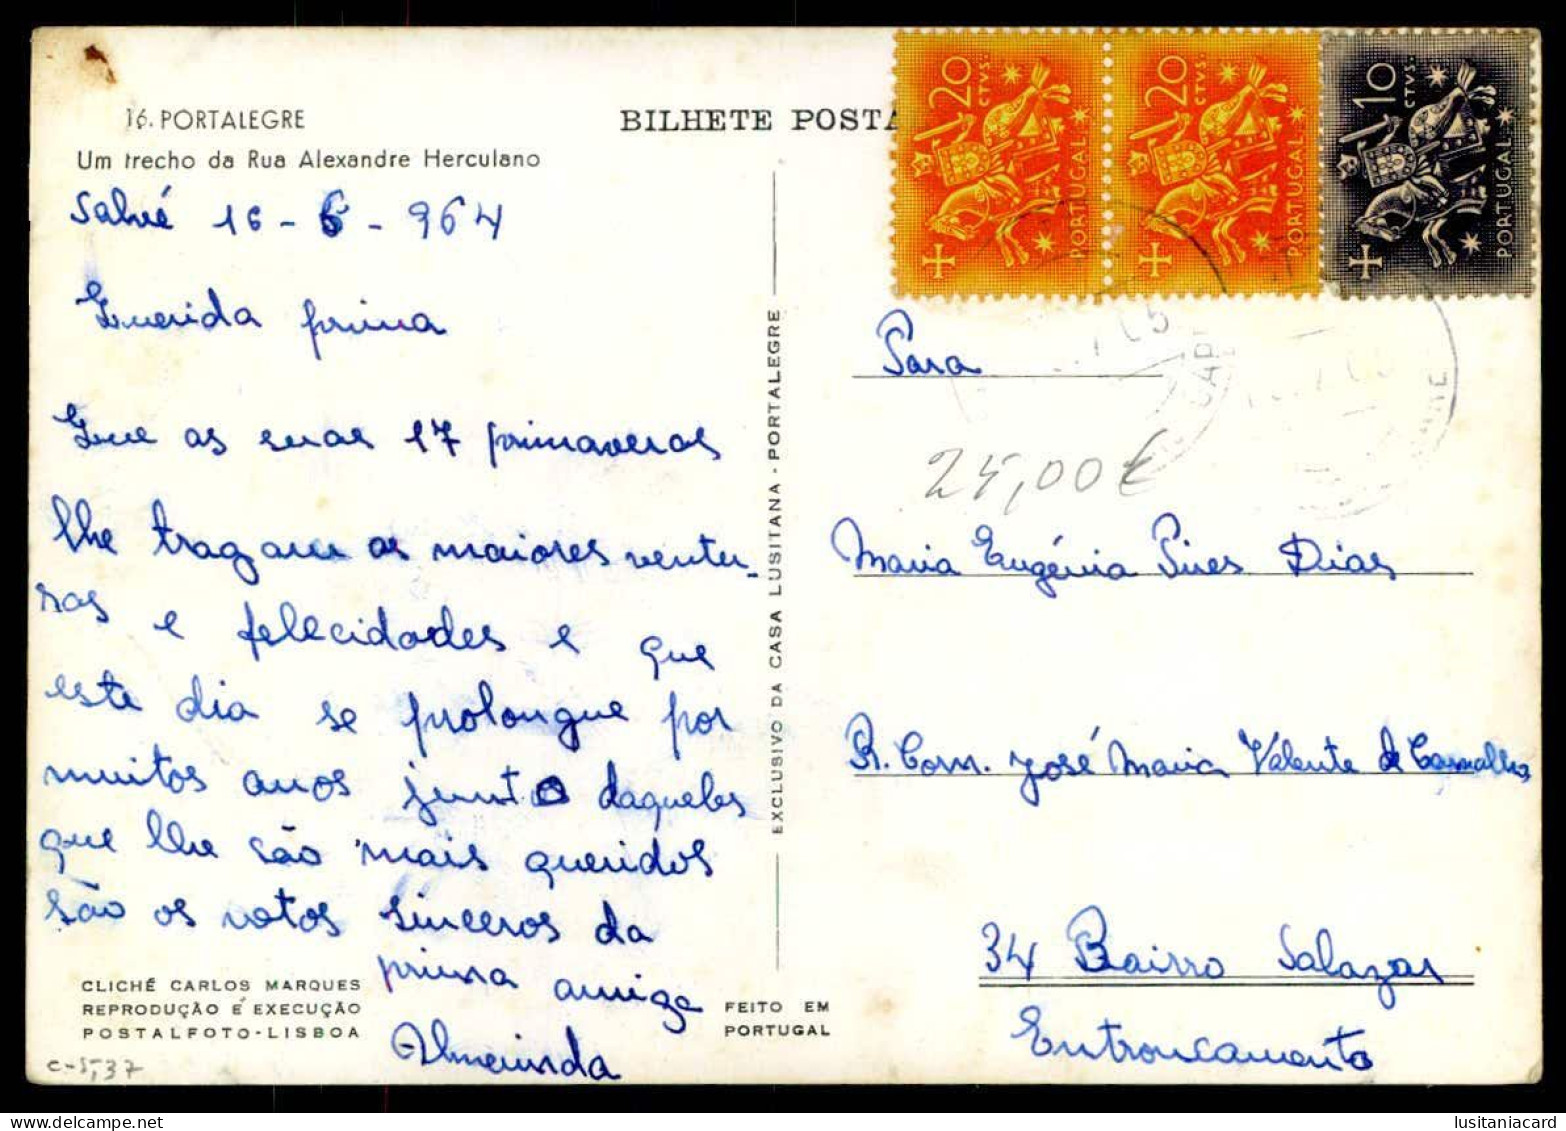 16. PORTALEGRE
Um trecho da Rua Alexandre Herculano
BILHETE POSTA
20 CTVS. PORTUGAL
20 CTVS. PORTUGAL
10 CTVS. PORTUGAL
16-6-964
Querida prima
Que as suas 17 primaveras
lhe tragam as maiores ventu-
ras e felecidades e que
este dia se prolongue por
muitos anos junto daqueles
que lhe são mais queridos
são os votos sinceros da
prima amiga
Almerinda
CLICHÉ CARLOS MARQUES
REPRODUÇÃO E EXECUÇÃO
POSTALFOTO-LISBOA
c-5,37
EXCLUSIVO DA CASA LUSITANA - PORTALEGRE
FEITO EM
PORTUGAL
Para
25,00€
Maria Eugénia Pires Dias
R. Com. José Maria Valente de Carvalho
34 Bairro Salazar
Entroncamento
lusitaniacard